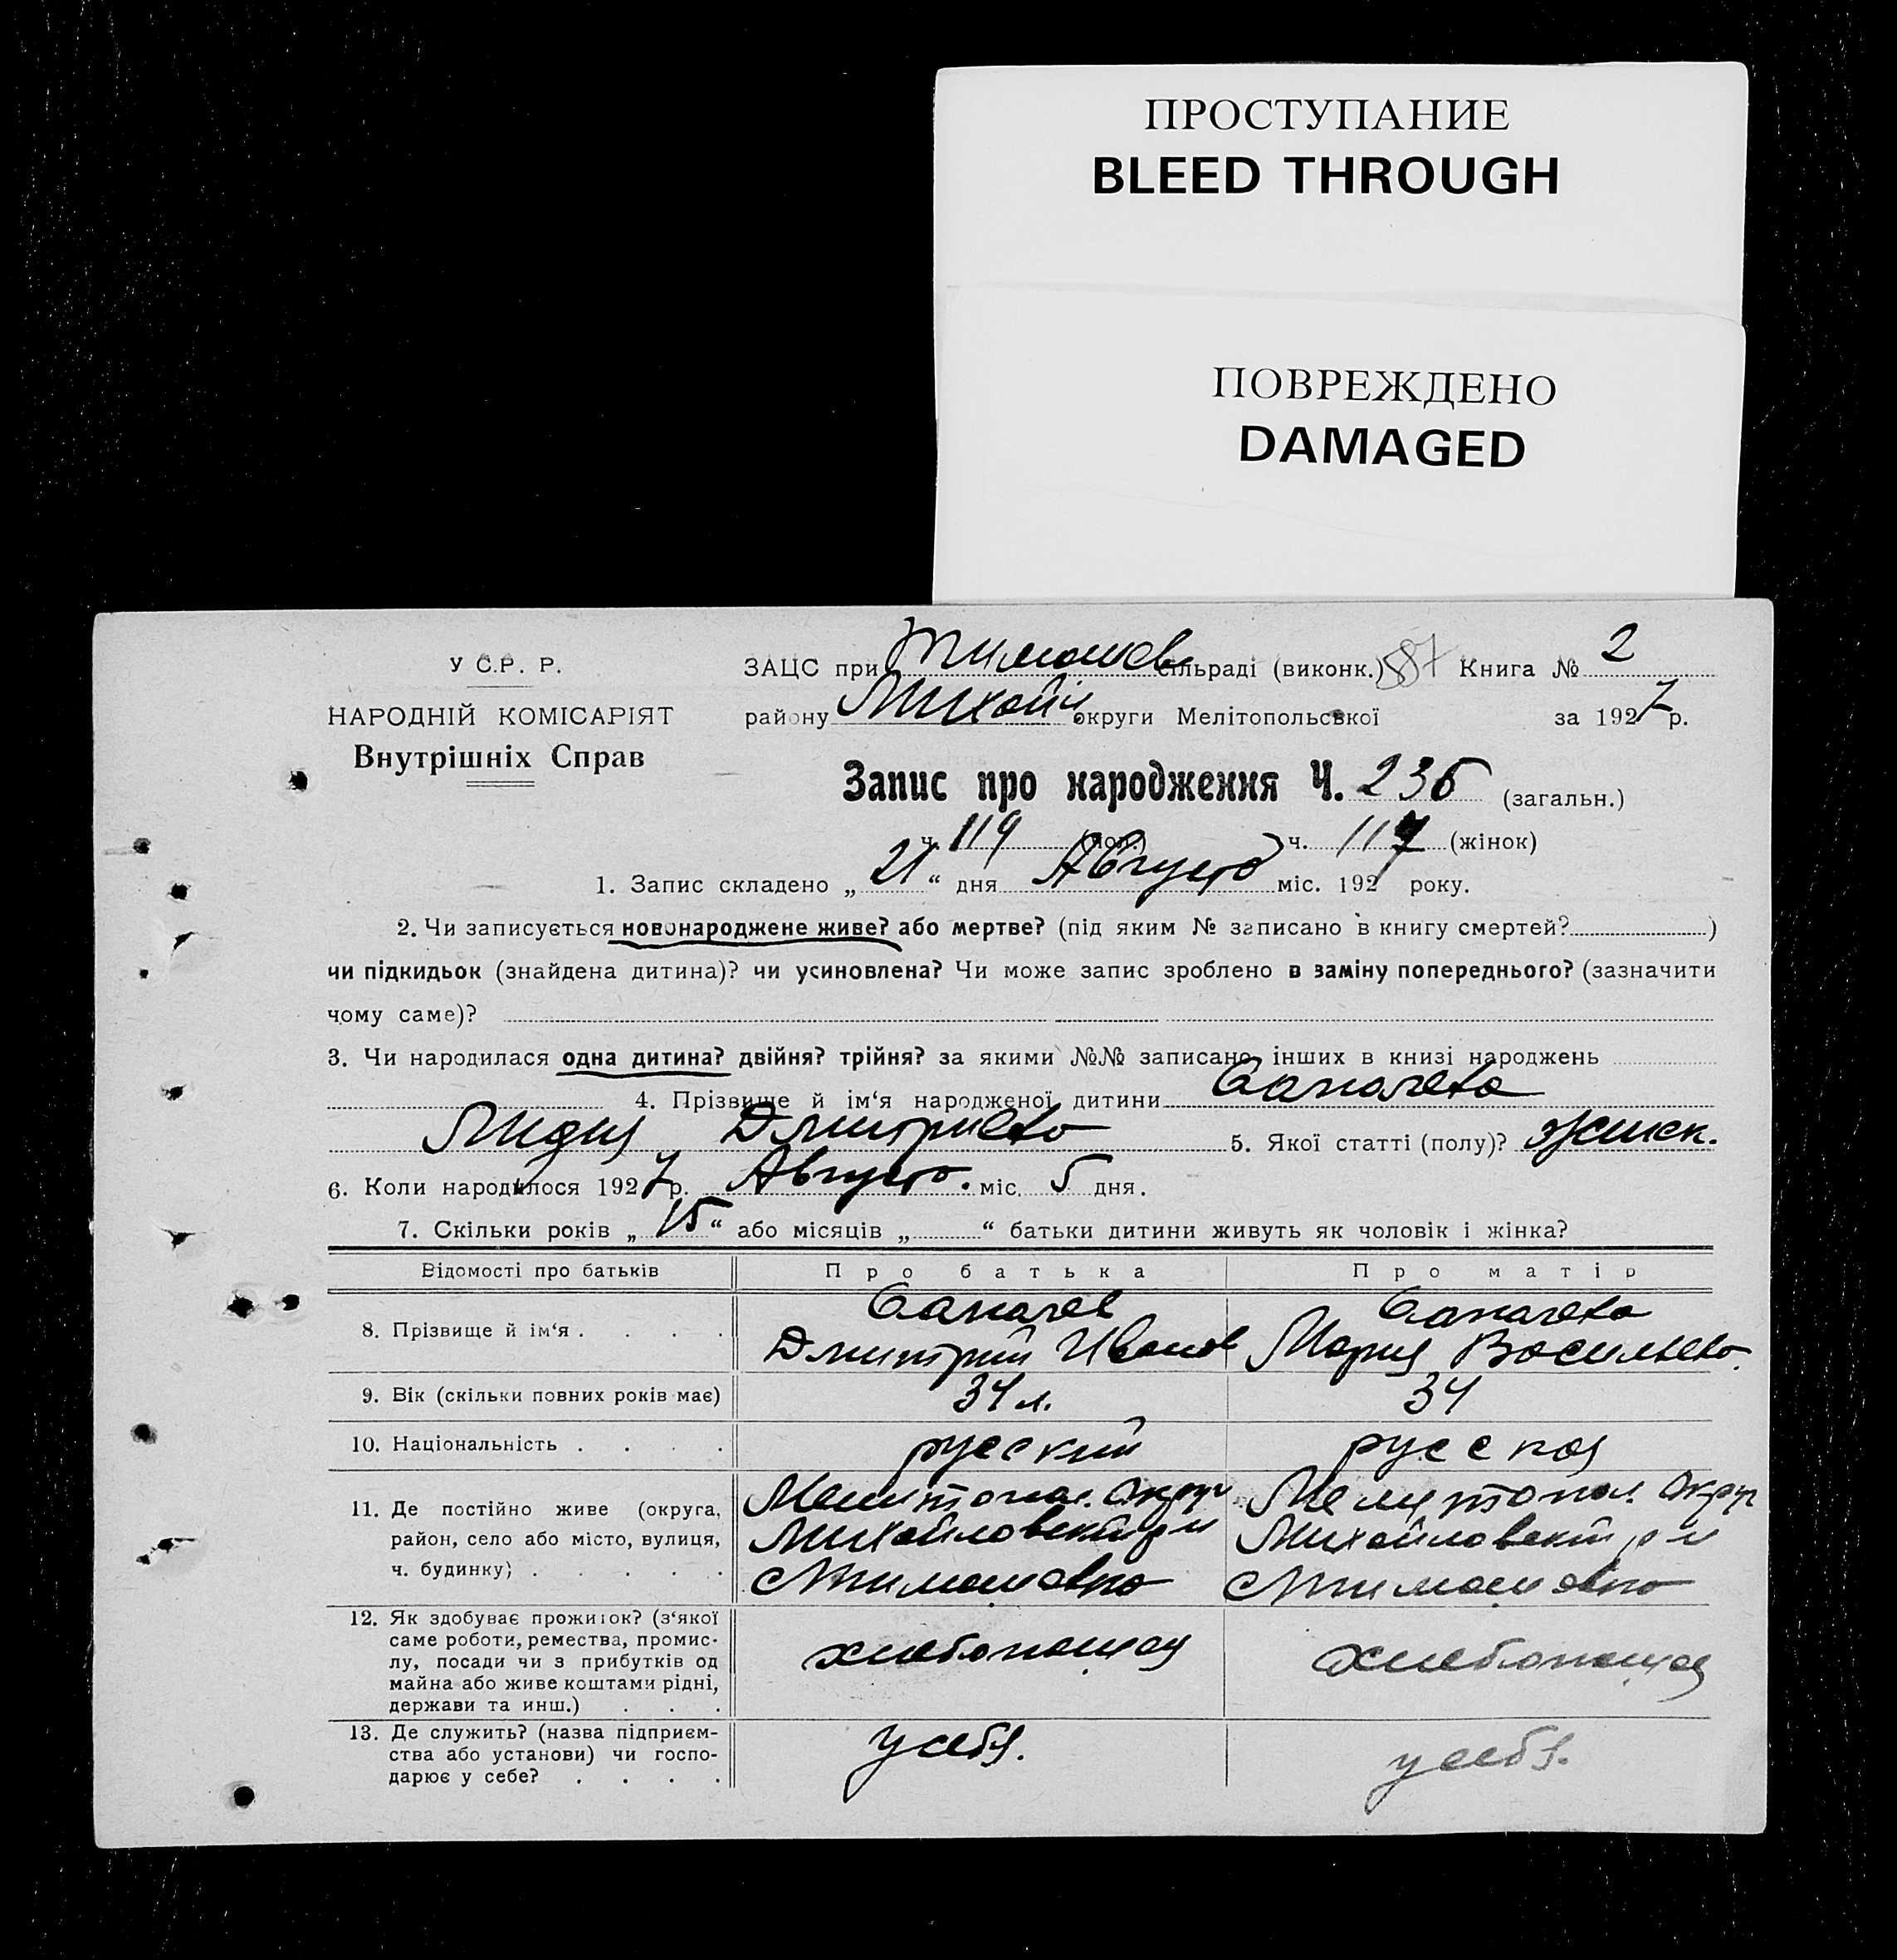 ПРОСТУПАНИЕ
BLEED THROUGH
ПОВРЕЖДЕНО
DAMAGED
У С.Р. Р.
НАРОДНІЙ КОМІСАРІЯТ
Внутрішніх Справ
ЗАЦС при Тимошев сільраді (виконк.) 87 Книга № 2
району Михайл округи Мелітопольської за 1927 р.
Запис про народження Ч. 236 (загальн.)
ч. 119 (чол.) ч. 117 (жінок)
1. Запис складено „ 21 “ дня Августа міс. 1927 року.
2. Чи записується новонароджене живе? або мертве? (під яким № записано в книгу смертей? )
чи підкидьок (знайдена дитина)? чи усиновлена? Чи може запис зроблено в заміну попереднього? (зазначити
чому саме)?
3. Чи народилася одна дитина? двійня? трійня? за якими №№ записано інших в книзі народжень
4. Прізвище й ім'я народженої дитини
Лидия Дмитриева 5. Якої статті (полу)? женск.
6. Коли народилося 1927 р. Августа. міс. 5 дня.
7. Скільки років „ 15 “ або місяців „ “ батьки дитини живуть як чоловік і жінка?
Відомості про батьків Про батька Про матір
8. Прізвище й ім'я . . . .
Дмитрий Иванов Мария Васильева.
9. Вік (скільки повних років має) 34 л. 34
10. Національність . . . . русский русская
11. Де постійно живе (округа, район, село або місто, вулиця, ч. будинку) . . . . .
Мелитопол. округ Мелитопол. округ
Михайловский р н Михайловский р н
с Тимошовка с Тимошовка
12. Як здобуває прожиток? (з'якої
саме роботи, ремества, промис-
лу, посади чи з прибутків од
майна або живе коштами рідні,
держави та инш.) . . .
хлебопашец хлебопашец
13. Де служить? (назва підприєм-
ства або установи) чи госпо-
дарює у себе? . . . .
у себя. у себя.